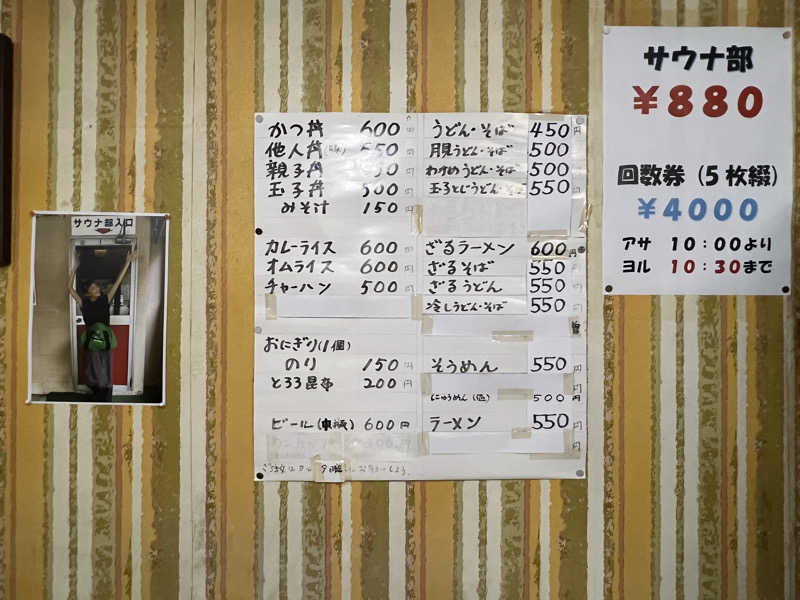 サウナ部入口
かつ丼 600円
他人丼 550円
親子丼 550円
玉子丼 500円
みそ汁 150円
カレーライス 600円
オムライス 600円
チャーハン 500円
おにぎり(1個)
のり 150円
とろろ昆布 200円
ビール(中瓶) 600円
うどん・そば 450円
月見うどん・そば 500円
わかめうどん・そば 500円
玉子とじうどん・そば 550円
ざるラーメン 600円
ざるそば 550円
ざるうどん 550円
冷しうどん・そば 550円
そうめん 550円
にゅうめん 500円
ラーメン 550円
サウナ部
¥880
回数券（5枚綴）
¥4000
アサ 10:00より
ヨル 10:30まで